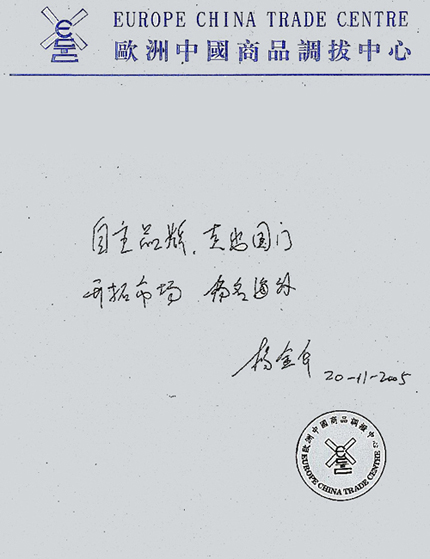 EUROPE CHINA TRADE CENTRE
歐洲中國商品調拔中心
自主品牌,走出国门
开拓市场 扬名海外
杨金
20-11-2005
歐洲中國商品調撥中心
EUROPE CHINA TRADE CENTRE